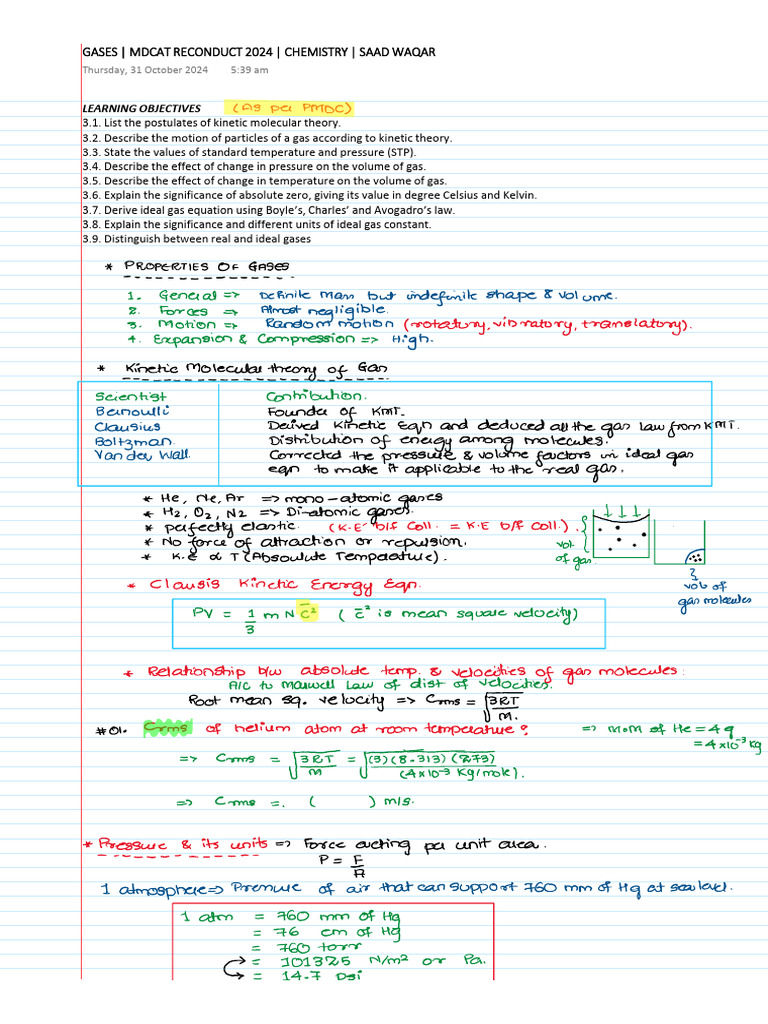 GASES | MDCAT RECONDUCT 2024 | CHEMISTRY | SAAD WAQAR
Thursday, 31 October 2024 5:39 am
LEARNING OBJECTIVES (As per PMDC)
3.1. List the postulates of kinetic molecular theory.
3.2. Describe the motion of particles of a gas according to kinetic theory.
3.3. State the values of standard temperature and pressure (STP).
3.4. Describe the effect of change in pressure on the volume of gas.
3.5. Describe the effect of change in temperature on the volume of gas.
3.6. Explain the significance of absolute zero, giving its value in degree Celsius and Kelvin.
3.7. Derive ideal gas equation using Boyle's, Charles' and Avogadro's law.
3.8. Explain the significance and different units of ideal gas constant.
3.9. Distinguish between real and ideal gases
* PROPERTIES OF GASES
1. General => Definite Mass but indefinite shape & volume.
2. Forces => Almost negligible.
3. Motion => Random motion (rotatory, vibratory, translatory).
4. Expansion & Compression => High.
* Kinetic Molecular theory of Gas
Scientist Contribution.
Bernoulli Founder of KMT.
Clausius Derived Kinetic Eqn and deduced all the gas law from KMT.
Boltzman. Distribution of energy among molecules.
Van der Wall. Corrected the pressure & volume factors in ideal gas
eqn to make it applicable to the real gas.
* He, Ne, Ar => mono-atomic gases
* H2, O2, N2 => Di-atomic gases.
* perfectly elastic. (K.E b/f Coll. = K.E b/f Coll.).
* No force of attraction or repulsion.
* K.E α T (Absolute Temperature).
vol.
of gas.
vol. of
gas molecules
* Clausis Kinetic Energy Eqn.
PV = 1/3 m N c̅² ( c̅² is mean square velocity)
* Relationship b/w absolute temp. & velocities of gas molecules:
A/c to Maxwell Law of dist of velocities.
Root mean sq. velocity => Crms = √3RT/M.
#01. Crms of helium atom at room temperature? => M.M of He = 4 g
= 4x10⁻³ kg
=> Crms = √3RT/M = √(3)(8.313)(273)/(4x10⁻³ Kg/mole).
=> Crms =. ( ) m/s.
* Pressure & its units => Force acting per unit area.
P = F/A
1 atmosphere => Pressure of air that can support 760 mm of Hg at sea level.
1 atm = 760 mm of Hg
= 76 cm of Hg
= 760 torr
= 101325 N/m² or Pa.
= 14.7 psi